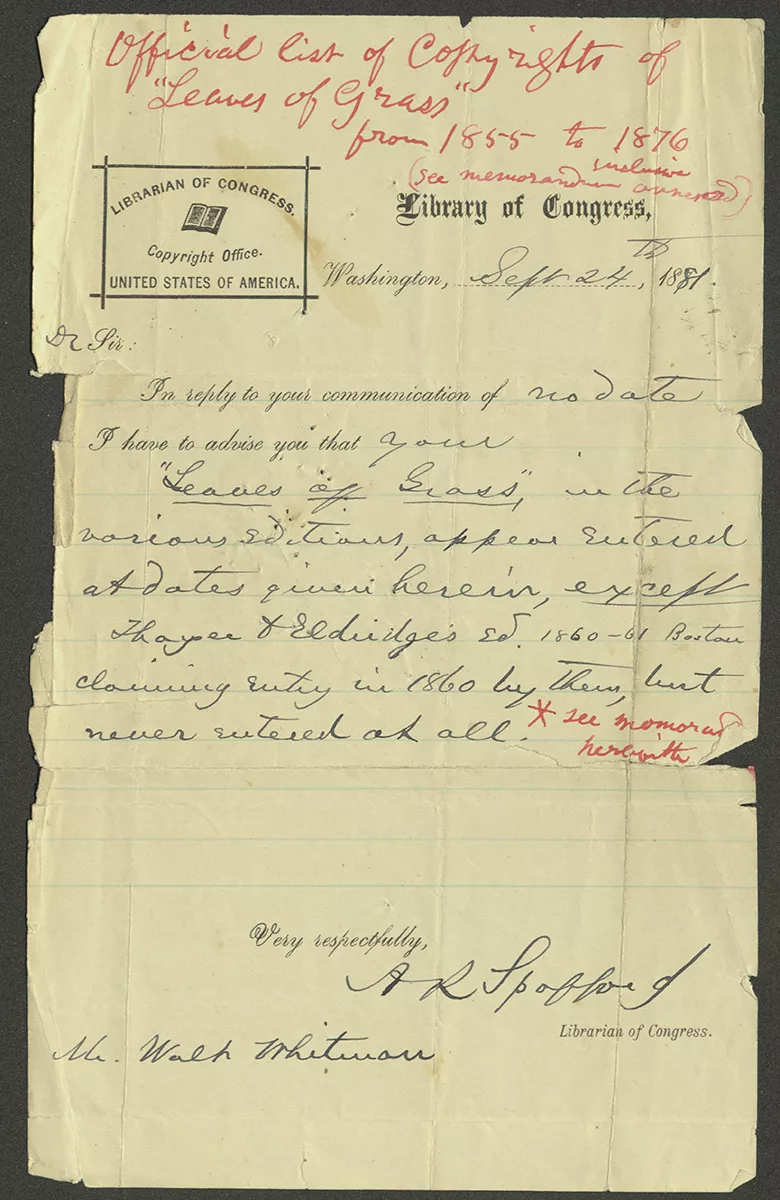 Official list of Copyrights of
"Leaves of Grass"
from 1855 to 1876
inclusive
(see memorandum annexed)
LIBRARIAN OF CONGRESS.
Copyright Office.
UNITED STATES OF AMERICA.
Library of Congress,
Washington, Sept 24th, 1881.
Dr Sir:
In reply to your communication of no date
I have to advise you that your
"Leaves of Grass", in the
various editions, appear entered
at dates given herein, except
Thayer & Eldridge's Ed. 1860-61 Boston
claiming entry in 1860 by them, but
never entered at all.
* see memorad
herewith
Very respectfully,
A R Spofford
Librarian of Congress.
Mr. Walt Whitman